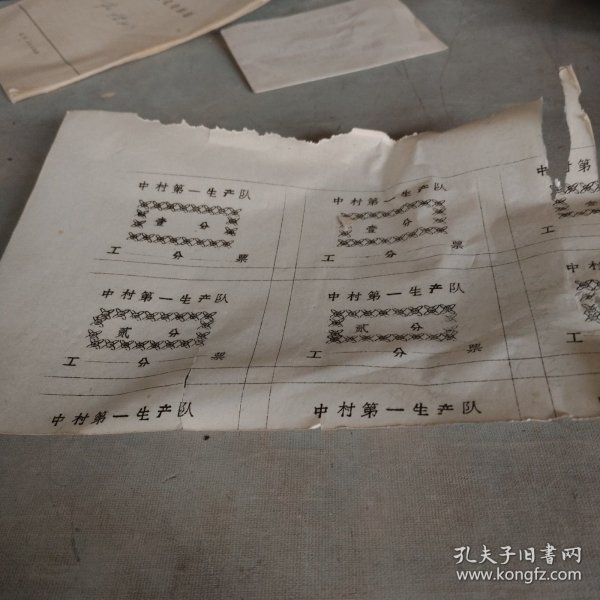 中村第一生产队
壹 分
工 分 票
中村第一生产队
壹 分
工 分 票
中村第
中村第一生产队
贰 分
工 分 票
中村第一生产队
贰 分
工 分 票
中村
工
中村第一生产队
中村第一生产队
孔夫子旧书网
www.kongfz.com